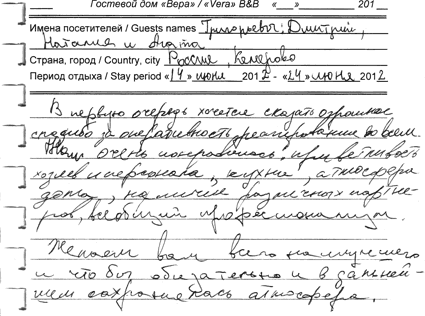 Гостевой дом «Вера» / «Vera» B&B «___»__________ 201__
Имена посетителей / Guests names Григорьевы: Дмитрий,
Наталия и Агата
Страна, город / Country, city Россия, Кемерово
Период отдыха / Stay period «14» июня 2012 - «24» июня 2012
В первую очередь хочется сказать огромное
спасибо за оперативность реагирования во всем.
Нам очень понравилась приветливость
хозяев и персонала, кухня, атмосфера
дома, наличие различных
ров, всеобщий профессионализм.
Желаем вам всего наилучшего
и что бы обязательно и в дальней-
шем сохранилась атмосфера.